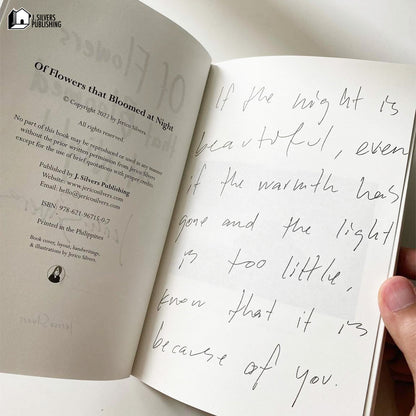 J. SILVERS
PUBLISHING
Of Flowers that Bloomed at Night
© Copyright 2022 by Jerico Silvers
All rights reserved.
No part of this book may be reproduced or used in any manner
without the prior written permission from Jerico Silvers,
except for the use of brief quotations with proper credits.
Published by J. Silvers Publishing
Website: www.jericosilvers.com
Email: hello@jericosilvers.com
ISBN: 978-621-96715-9-7
Printed in the Philippines
Book cover, layout, handwritings,
& illustrations by Jerico Silvers.
If the night is
beautiful, even
if the warmth has
gone and the light
is too little,
know that it is
because of you.